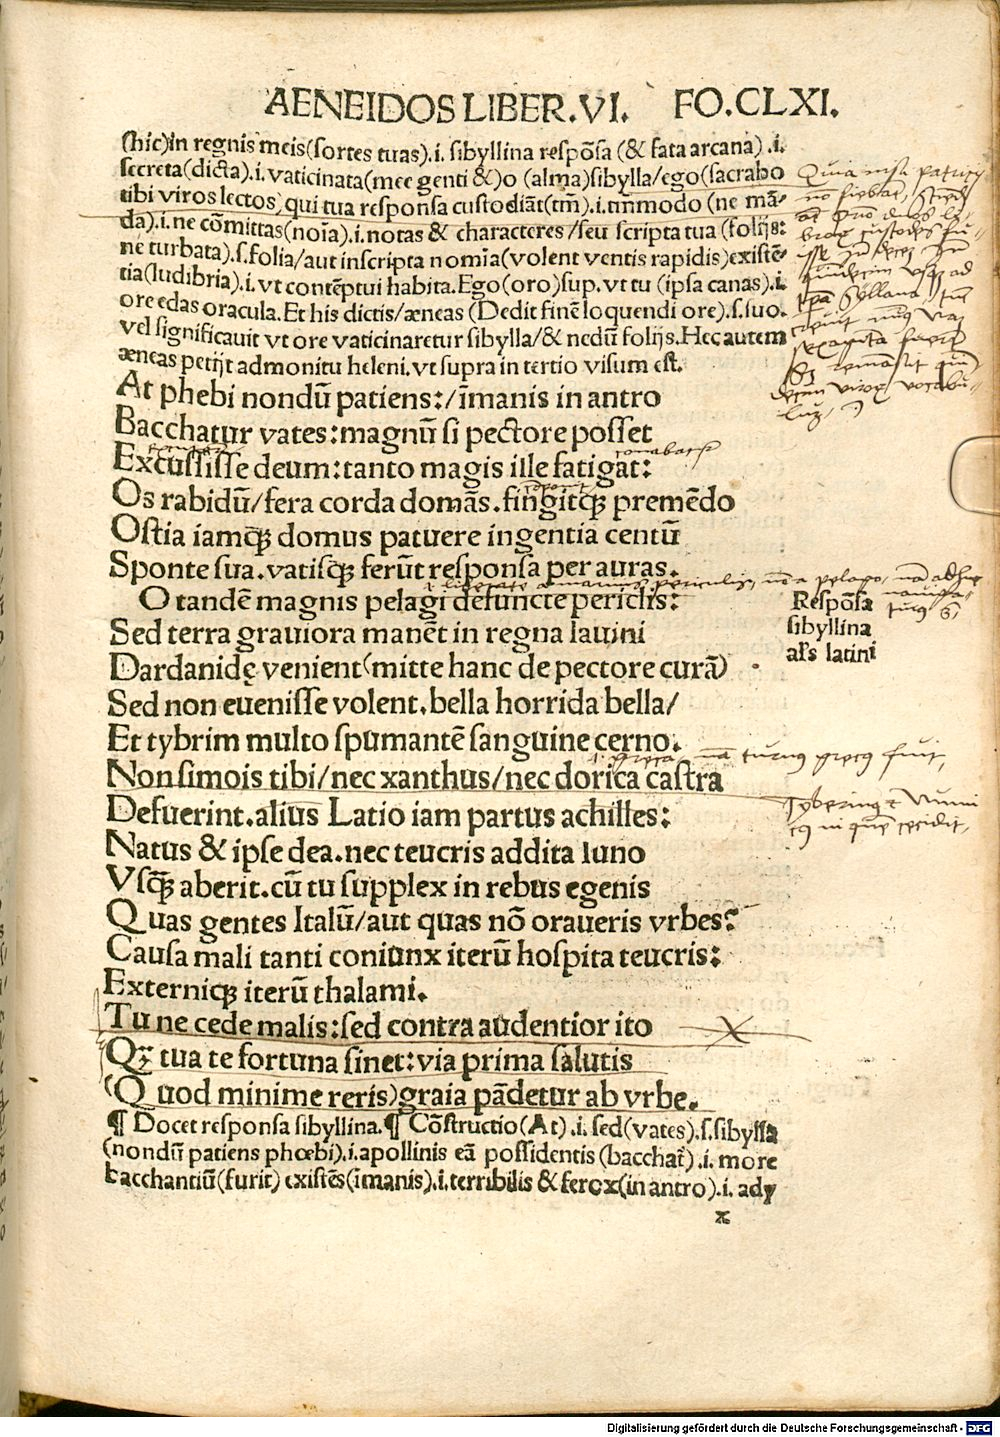 AENEIDOS LIBER.VI. FO.CLXI.
(hic)in regnis meis(sortes tuas).i. sibyllina respõsa (& fata arcana) .i.
secreta(dicta).i.vaticinata(mee genti &)o (alma)sibylla/ego(sacrabo
tibi viros lectos, qui tua responsa custodiãt(tm̃).i.tm̃modo (ne mã-
da).i.ne cõmittas(noĩa).i.notas & characteres/seu scripta tua (folijs:
ne turbata).s.folia/aut inscripta nomĩa(volent ventis rapidis)existẽ-
tia(ludibria).i.vt contẽptui habita.Ego(oro)sup.vt tu (ipsa canas).i.
ore edas oracula.Et his dictis/æneas (Dedit finẽ loquendi ore).s.suo.
vel significauit vt ore vaticinaretur sibylla/& nedũ folijs.Hec autem
æneas petijt admonitu heleni.vt supra in tertio visum est.
At phebi nondũ patiens:/ĩmanis in antro
Bacchatur vates:magnũ si pectore posset
conabatur
Excussisse deum:tanto magis ille fatigat:
Os rabidũ/fera corda domãs.fingitq̃ premẽdo
Ostia iamq̃ domus patuere ingentia centũ
Sponte sua.vatisq̃ ferũt responsa per auras.
O tandẽ magnis pelagi defuncte periclis:
Respõsa
sibyllina
al's latini
Sed terra grauiora manẽt in regna lauini
Dardanidę venient(mitte hanc de pectore curã)
Sed non euenisse volent.bella horrida bella/
Et tybrim multo spumantẽ sanguine cerno.
nã turnus grecus fuit,
Non simois tibi/nec xanthus/nec dorica castra
Defuerint.alius Latio iam partus achilles:
Natus & ipse dea.nec teucris addita iuno
Vsq̃ aberit.cũ tu supplex in rebus egenis
Quas gentes Italũ/aut quas nõ oraueris vrbes?
Causa mali tanti coniunx iterũ hospita teucris:
Externiq̃ iterũ thalami.
Tu ne cede malis:sed contra audentior ito
Qꝫ tua te fortuna sinet:via prima salutis
(Quod minime reris)graia pãdetur ab vrbe.
¶ Docet responsa sibyllina.¶ Cõstructio(At).i.sed(vates).s.sibylla
(nondũ patiens phœbi).i.apollinis eã possidentis(bacchat̃).i.more
bacchantiũ(furit) existẽs(ĩmanis).i.terribilis & ferox(in antro).i. ady
x
Digitalisierung gefördert durch die Deutsche Forschungsgemeinschaft - DFG